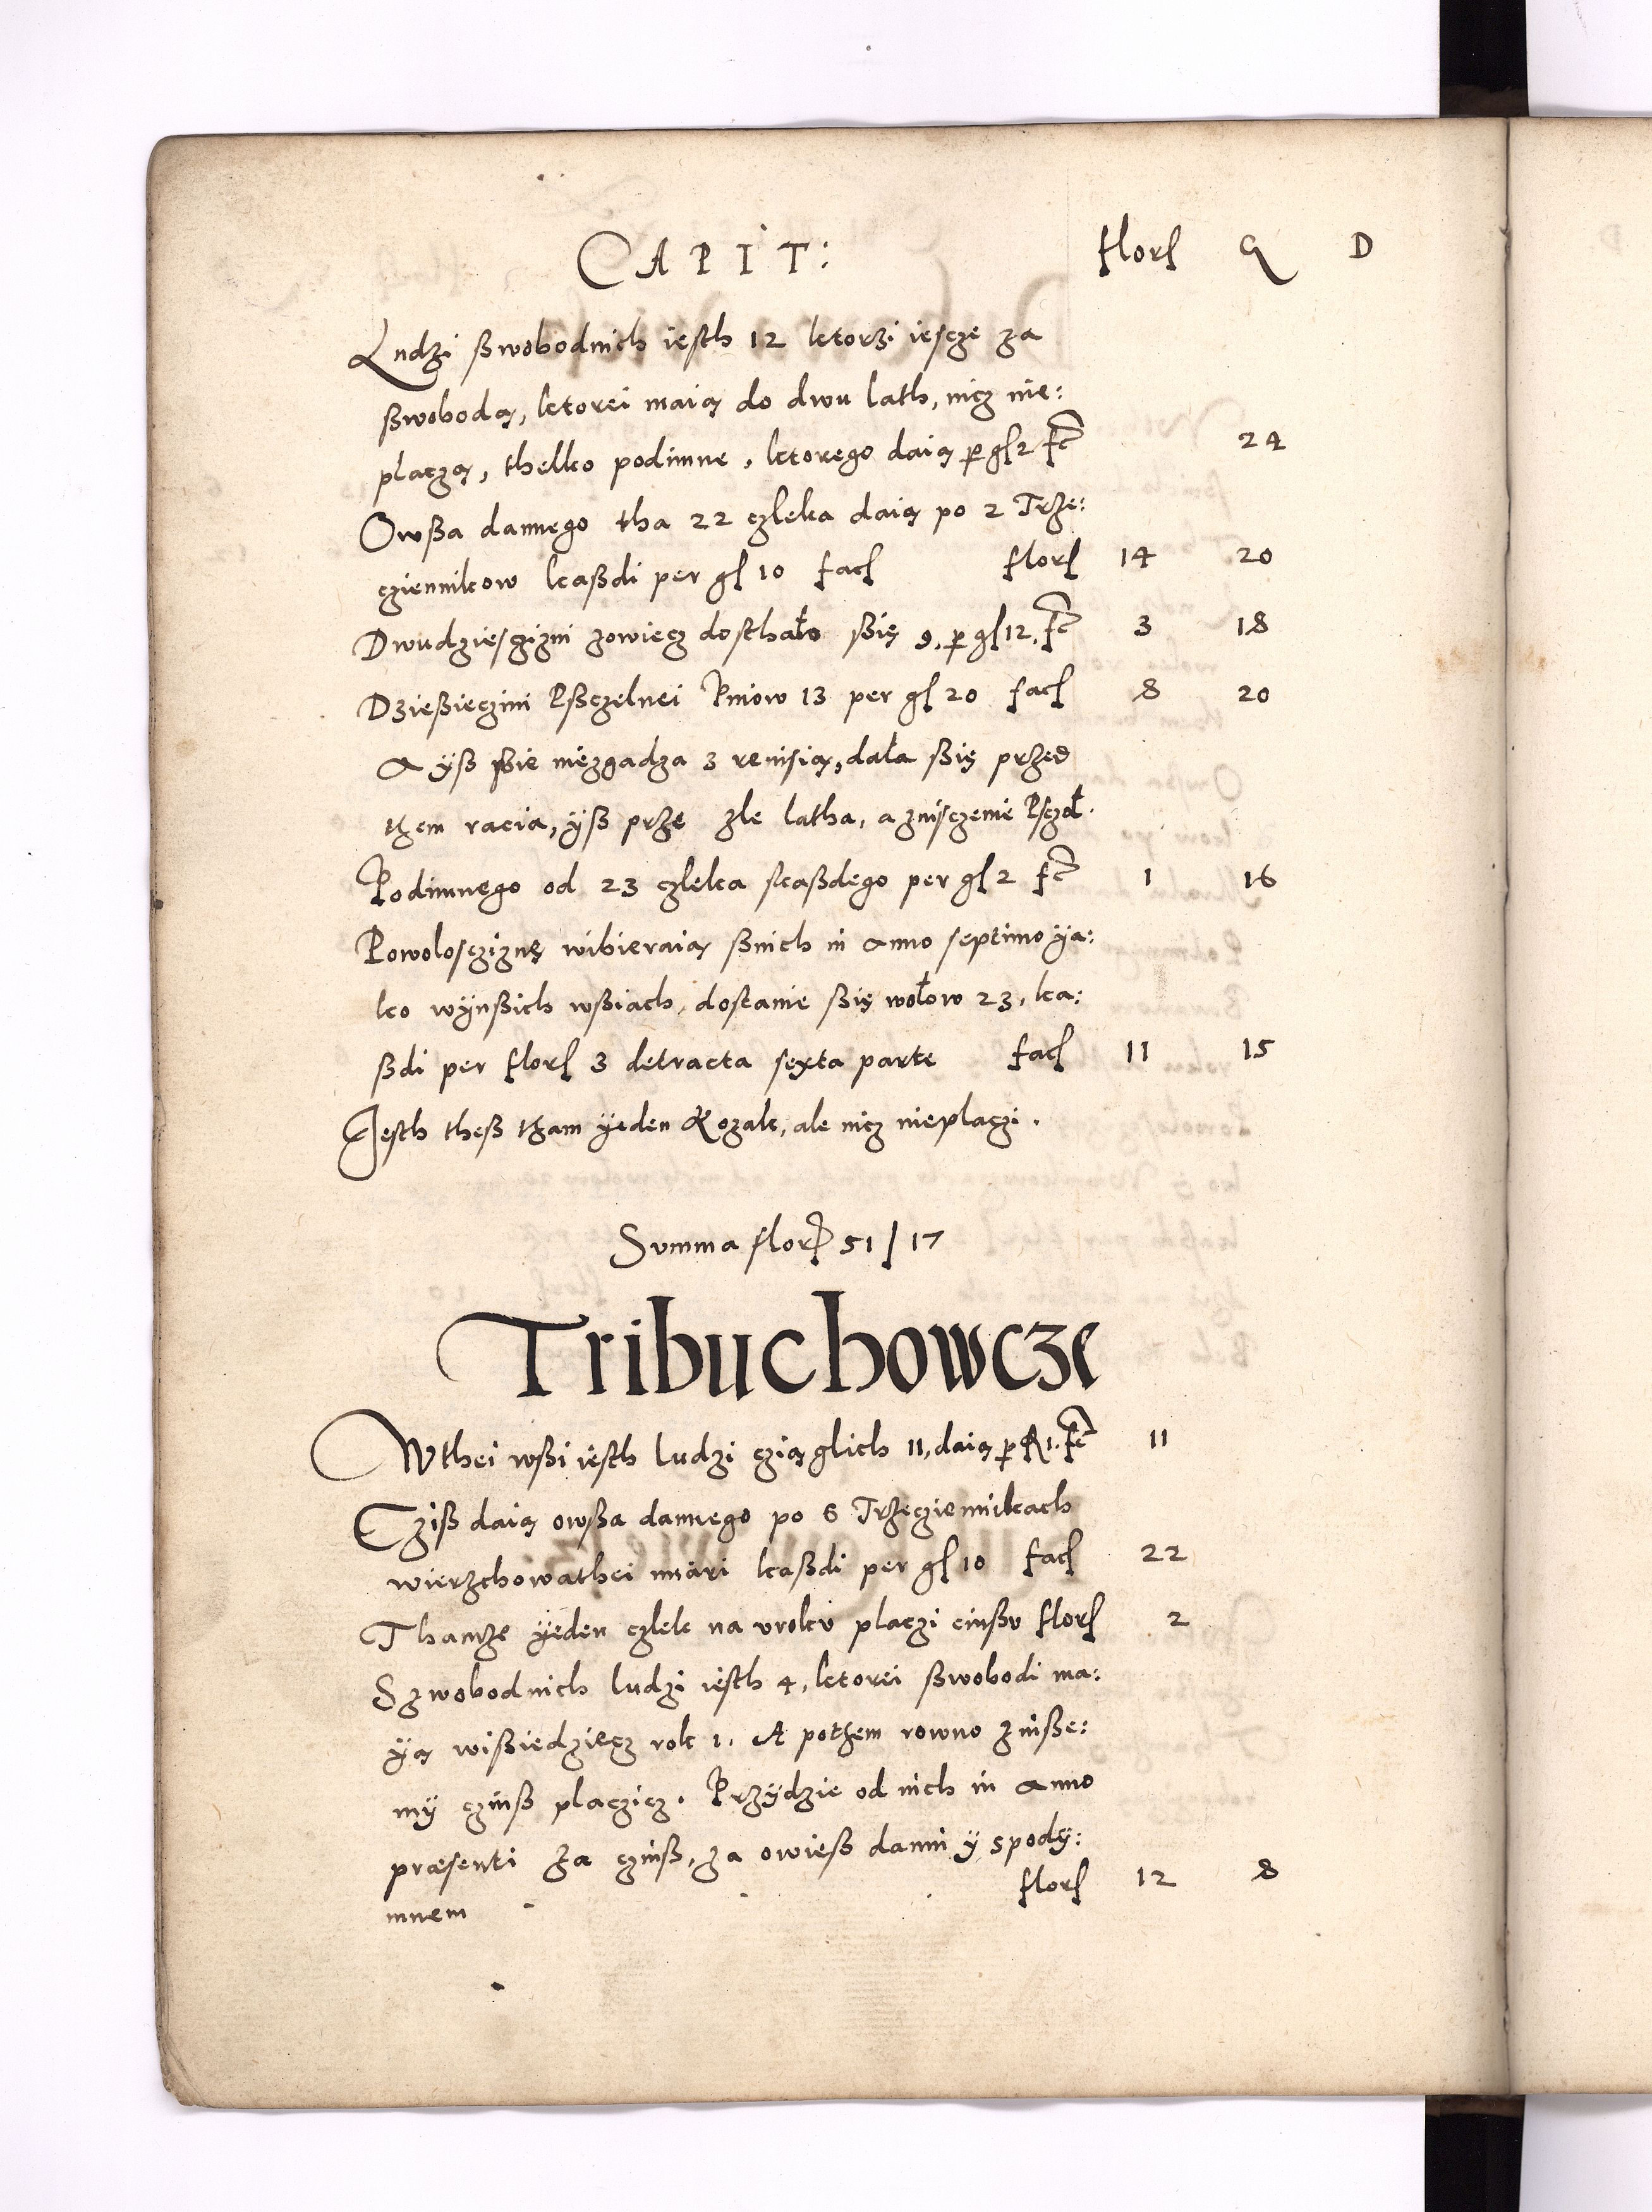 CAPIT: florſ G D
Ludzi ßwobodnich iesth 12 ktorzi iescze za
ßwobodą, ktorei maią do dwu lath, nicz nie:
placzą, thelko podimne, ktorego daią p gſ 2 fc 24
Owßa dannego tha 22 czleka daią po 2 Trze:
cziennikow kaßdi per gſ 10 facſ florſ 14 20
Dwudziesczizni zowiecz dosthało ßię 9, p gſ 12, fc 3 18
Dzießieczini Pßczelnei Pniow 13 per gſ 20 facſ 8 20
A yß ßie niezgadza z reuisią, dała ßię przed
tzem racia, yß prze zle latha, a zniszczenie Psczoł.
Podimnego od 23 czleka kaßdego per gſ 2 fc 1 16
Powoloscziznę wibieraią ßnich in Anno septimo ya:
ko wÿnßich wßiach, dostanie ßię wołow 23, ka:
ßdi per florſ 3 detracta sexta parte facſ 11 15
Jesth theß tzam ÿeden Kozak, ale nicz nieplaczi.
Summa florſ 51 / 17
Tribuchowcze
Wthei wßi iesth ludzi cziąglich 11, daią p R 1. fc 11
Cziß daią owßa dannego po 6 Trzeciennikach
wierzchowathei miari kaßdi per gſ 10 facſ 22
Thamze ÿeden czlek na vroku placzi cinßu florſ 2
Szwobodnich ludzi iesth 4, ktorei ßwobodi ma:
ÿą wißiedziecz rok 1. A potzem rowno zinße:
mÿ czinß placzicz. Przÿdzie od nich in Anno
præsenti za czinß, za owieß danni ÿ spodÿ:
mnem florſ 12 8